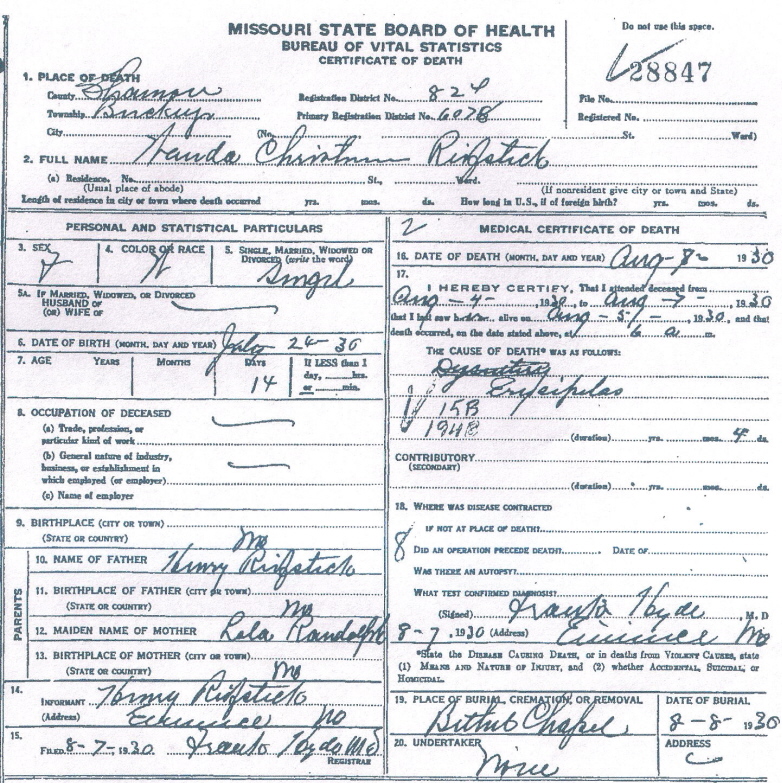 MISSOURI STATE BOARD OF HEALTH
BUREAU OF VITAL STATISTICS
CERTIFICATE OF DEATH
Do not use this space.
28847
1. PLACE OF DEATH
County Shannon
Registration District No. 824
File No.
Township
Primary Registration District No. 6078
Registered No.
City (No. St. Ward)
2. FULL NAME Wanda Rifstick
(a) Residence. No. St., Ward.
(Usual place of abode) (If nonresident give city or town and State)
Length of residence in city or town where death occurred yrs. mos. ds. How long in U.S., if of foreign birth? yrs. mos. ds.
PERSONAL AND STATISTICAL PARTICULARS
3. SEX F
4. COLOR OR RACE W
5. SINGLE, MARRIED, WIDOWED OR DIVORCED (write the word) Singel
5A. IF MARRIED, WIDOWED, OR DIVORCED
HUSBAND OF
(OR) WIFE OF
6. DATE OF BIRTH (MONTH, DAY AND YEAR) July 24-30
7. AGE YEARS MONTHS DAYS If LESS than 1
day, hrs.
or min.
14
8. OCCUPATION OF DECEASED
(a) Trade, profession, or
particular kind of work
(b) General nature of industry,
business, or establishment in
which employed (or employer)
(c) Name of employer
9. BIRTHPLACE (CITY OR TOWN)
(STATE OR COUNTRY) Mo
PARENTS
10. NAME OF FATHER Henry Rifstick
11. BIRTHPLACE OF FATHER (CITY OR TOWN)
(STATE OR COUNTRY) Mo
12. MAIDEN NAME OF MOTHER Lela Randolph
13. BIRTHPLACE OF MOTHER (CITY OR TOWN)
(STATE OR COUNTRY) Mo
14.
INFORMANT Henry Rifstick
(Address) Eminence Mo
15.
FILED 8-7-1930 Frank Hyde MD
REGISTRAR
2 MEDICAL CERTIFICATE OF DEATH
16. DATE OF DEATH (MONTH, DAY AND YEAR) Aug-7- 1930
17.
I HEREBY CERTIFY, That I attended deceased from
Aug-4-, 1930, to Aug-7-, 1930
that I last saw alive on Aug-5-, 1930, and that
death occurred, on the date stated above, at 6 a m.
THE CAUSE OF DEATH* WAS AS FOLLOWS:
Erysipilas
15B
194B
(duration) yrs. mos. 4 ds.
CONTRIBUTORY
(SECONDARY)
(duration) yrs. mos. ds.
18. WHERE WAS DISEASE CONTRACTED
IF NOT AT PLACE OF DEATH?
8 DID AN OPERATION PRECEDE DEATH? DATE OF
WAS THERE AN AUTOPSY?
WHAT TEST CONFIRMED DIAGNOSIS?
(Signed) Frank Hyde, M.D
8-7, 1930 (Address) Eminence Mo
*State the DISEASE CAUSING DEATH, or in deaths from VIOLENT CAUSES, state
(1) MEANS AND NATURE OF INJURY, and (2) whether ACCIDENTAL, SUICIDAL, or
HOMICIDAL.
19. PLACE OF BURIAL, CREMATION, OR REMOVAL
Chapel
DATE OF BURIAL
8-8-1930
20. UNDERTAKER
None
ADDRESS